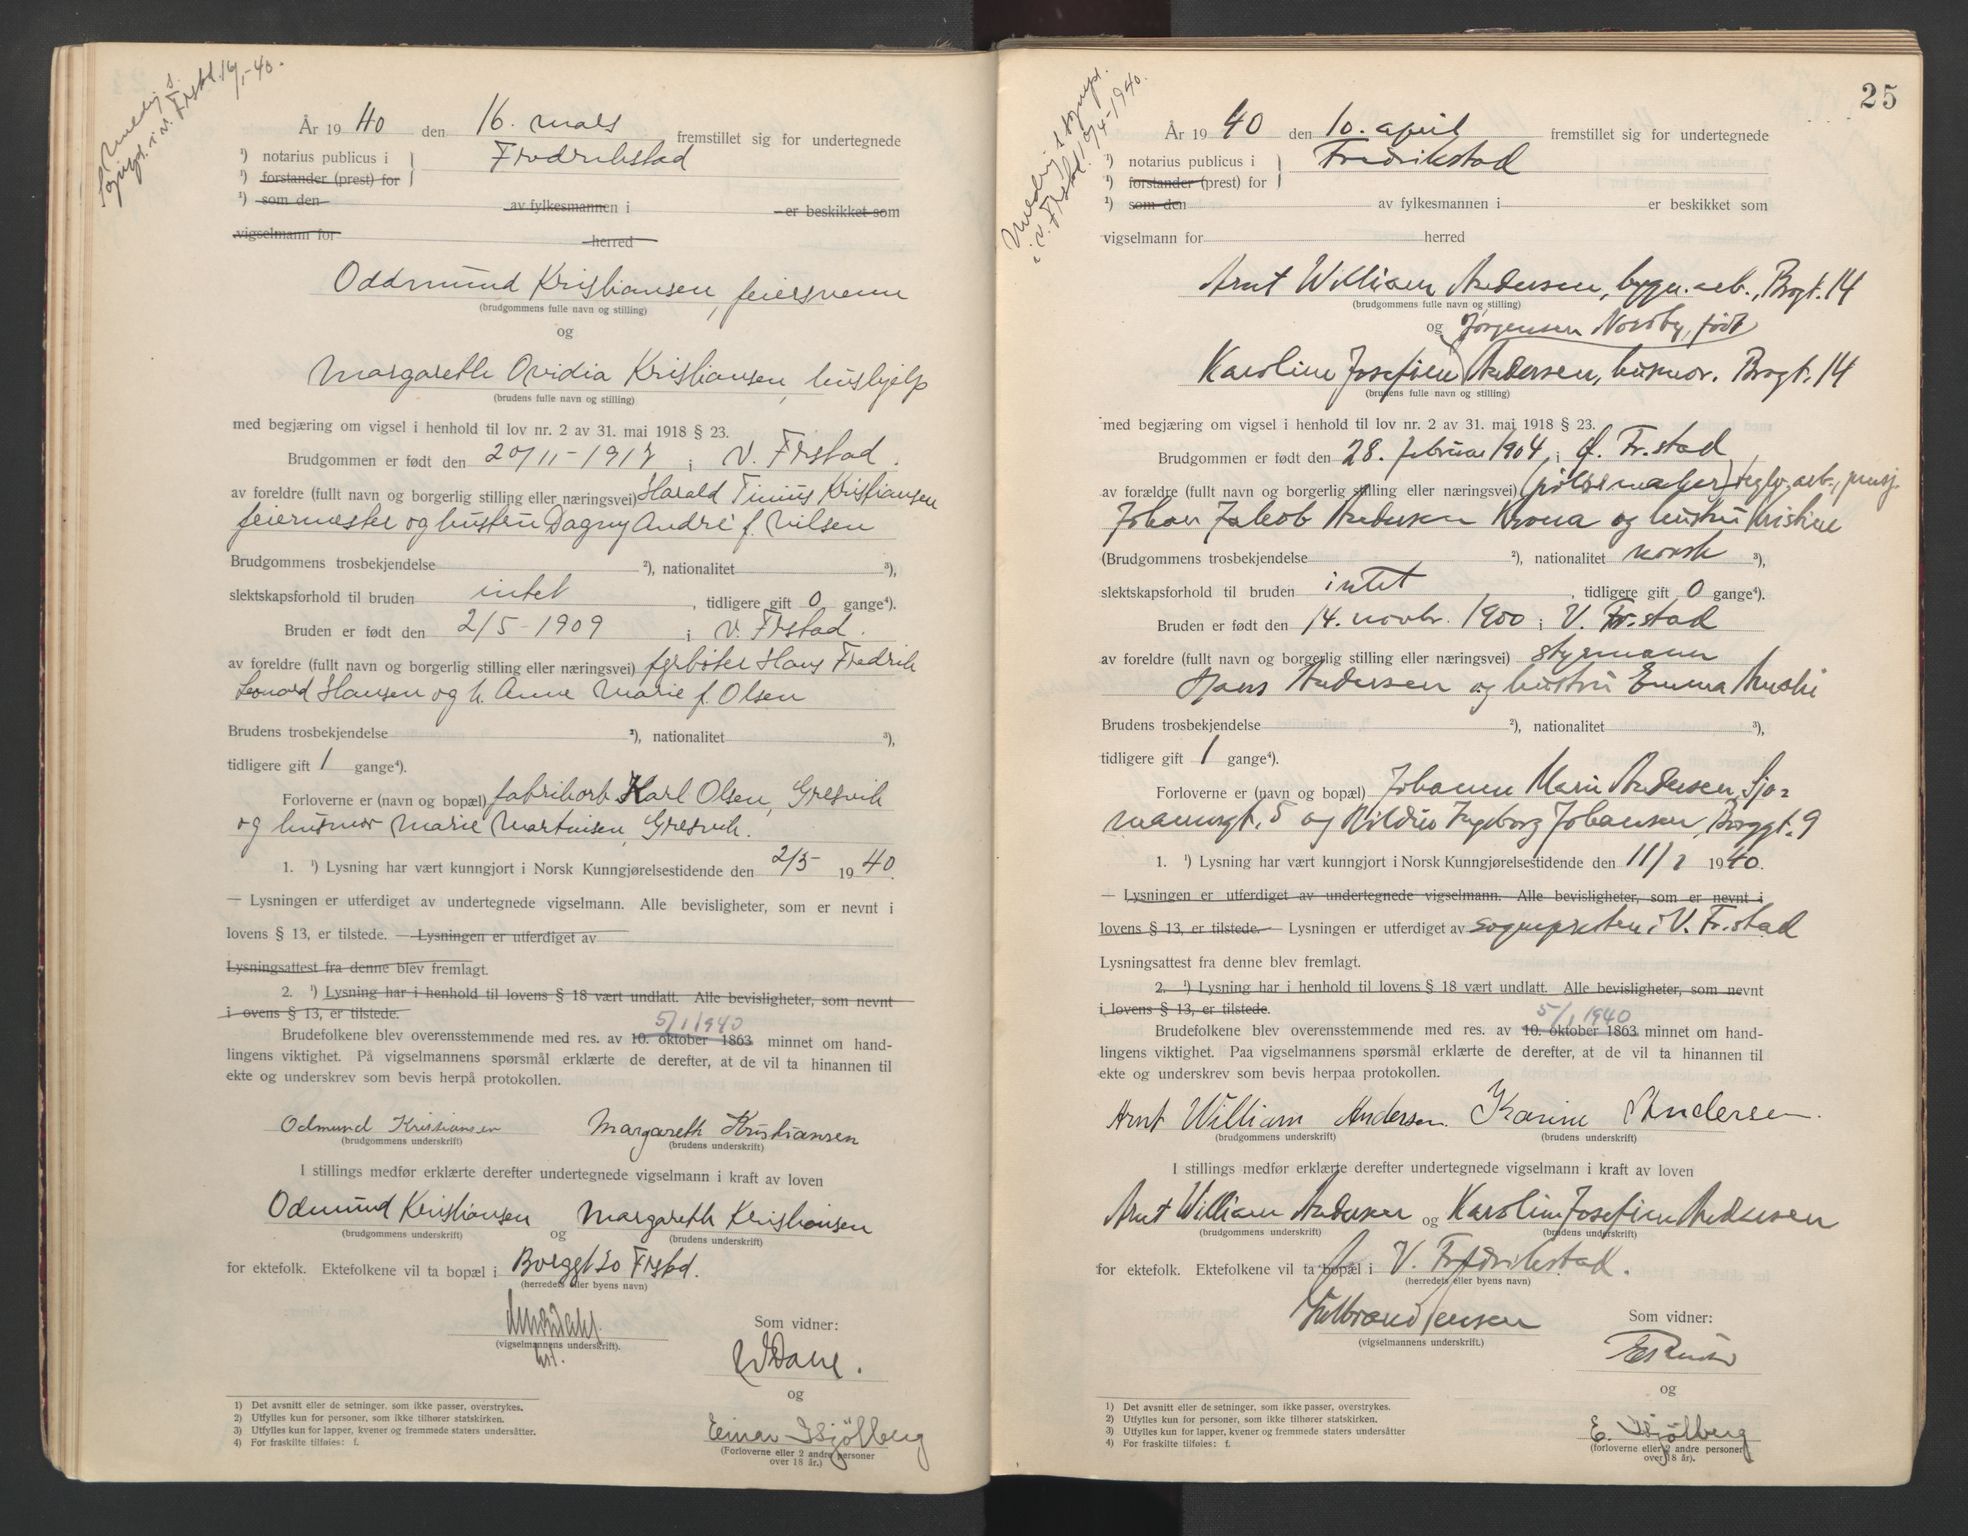 År 1940 den 16. mars fremstillet sig for undertegnede
¹) notarius publicus i Fredrikstad
¹) forstander (prest) for
¹) som den av fylkesmannen i er beskikket som
vigselmann for herred
Oddmund Kristiansen, feiersvenn
(brudgommens fulle navn og stilling)
og
Margareth Ovidia Kristiansen, hushjelp
(brudens fulle navn og stilling)
med begjæring om vigsel i henhold til lov nr. 2 av 31. mai 1918 § 23.
Brudgommen er født den 20/11-1917 i V. Frstad.
av foreldre (fullt navn og borgerlig stilling eller næringsvei) Harald Kristiansen
feiermester og hustru Dagny André f. Nilsen
Brudgommens trosbekjendelse ²), nationalitet ³),
slektskapsforhold til bruden intet, tidligere gift 0 gange⁴).
Bruden er født den 2/5-1909 i V. Frstad.
av foreldre (fullt navn og borgerlig stilling eller næringsvei) fyrbøter Hans Fredrik
Leonard Hansen og h. Anne Marie f. Olsen
Brudens trosbekjendelse ²), nationalitet ³),
tidligere gift 1 gange⁴).
Forloverne er (navn og bopæl) fabrikarb Karl Olsen, Gresvik
og husmor Marie Martinsen, Gresvik.
1. ¹) Lysning har vært kunngjort i Norsk Kunngjørelsestidende den 1940.
— Lysningen er utferdiget av undertegnede vigselmann. Alle bevisligheter, som er nevnt i
lovens § 13, er tilstede. — Lysningen er utferdiget av
Lysningsattest fra denne blev fremlagt.
2. ¹) Lysning har i henhold til lovens § 18 vært undlatt. Alle bevisligheter, som nevnt
i ovens § 13, er tilstede.
5/1 1940
Brudefolkene blev overensstemmende med res. av 10. oktober 1863 minnet om hand-
lingens viktighet. På vigselmannens spørsmål erklærte de derefter, at de vil ta hinannen til
ekte og underskrev som bevis herpå protokollen.
Odmund Kristiansen Margareth Kristiansen
(brudgommens underskrift) (brudens underskrift)
I stillings medfør erklærte derefter undertegnede vigselmann i kraft av loven
Odmund Kristiansen og Margareth Kristiansen
(brudgommens underskrift) (brudens underskrift)
for ektefolk. Ektefolkene vil ta bopæl i Borggt 20 Frstad.
(herredets eller byens navn)
Som vidner:
(vigselmannens underskrift).
og
Einar Isjölberg
(Forloverne eller 2 andre personer
over 18 år.)
1) Det avsnitt eller de setninger. som ikke passer, overstrykes.
2) Utfylles kun for personer, som ikke tilhører statskirken.
3) Utfylles kun for lapper, kvener og fremmede staters undersåtter.
4) For fraskilte tilføies: f.
25
År 1940 den 10. april fremstillet sig for undertegnede
¹) notarius publicus i Fredrikstad
¹) forstander (prest) for
¹) som den av fylkesmannen i er beskikket som
vigselmann for herred
Arnt William Andersen, bygn. arb., Brogt. 14
(brudgommens fulle navn og stilling)
og Jørgensen Nordby, født
Karoline Josefine Andersen, husmor. Brogt. 14
(brudens fulle navn og stilling)
med begjæring om vigsel i henhold til lov nr. 2 av 31. mai 1918 § 23.
Brudgommen er født den 28. februar 1904 i Ø. Fr.stad
av forældre (fullt navn og borgerlig stilling eller næringsvei)
Johan Jakob Andersen Krona og hustru Kristine
(Brudgommens trosbekjendelse ²), nationalitet norsk ³),
slektskapsforhold til bruden intet, tidligere gift 0 gange⁴).
Bruden er født den 14. novbr. 1900 i V. Fr.stad
av foreldre (fullt navn og borgerlig stilling eller næringsvei) styrmann
Hans Andersen og hustru Emma
Brudens trosbekjendelse ²), nationalitet ³),
tidligere gift 1 gange⁴).
Forloverne er (navn og bopæl) Johanne Marie Andersen, Sjø-
mannsgt. 5 og Hildur Ingeborg Johansen, Borggt. 9
1. ¹) Lysning har vært kunngjort i Norsk Kunngjørelsestidende den 1940.
— Lysningen er utferdiget av undertegnede vigselmann. Alle bevisligheter, som er nevnt i
lovens § 13, er tilstede. — Lysningen er utferdiget av sogneprsten i V. Fr.stad
Lysningsattest fra denne blev fremlagt.
2. ¹) Lysning har i henhold til lovens § 18 vært undlatt. Alle bevisligheter, som nevnt
i lovens § 13, er tilstede.
5/1 1940
Brudefolkene blev overensstemmende med res. av 10. oktober 1863 minnet om hand-
lingens viktighet. Paa vigselmannens spørsmål erklærte de derefter, at de vil ta hinannen til
ekte og underskrev som bevis herpaa protokollen.
Arnt William Andersen. Karine Andersen.
(brudgommens underskrift) (brudens underskrift)
I stillings medfør erklærte derefter undertegnede vigselmann i kraft av loven
Arnt William Andersen og Karoline Josefine Andersen
(brudgommens underskrift) (brudens underskrift)
for ektefolk. Ektefolkene vil ta bopæl i V. Fredrikstad.
(herredets eller byens navn)
Gulbrand Jensen Som vidner:
(vigselmannens underskrift.)
og
E. Isjölberg
(forloverne eller 2 andre personer
over 18 år).
1) Det avsnitt eller de setninger, som ikke passer, overstrykes.
2) Utfylles kun for personer, som ikke tilhører statskirken.
3) Utfylles kun for lapper, kvener og fremmede staters undersåtter
4) For fraskilte tilføies: f.